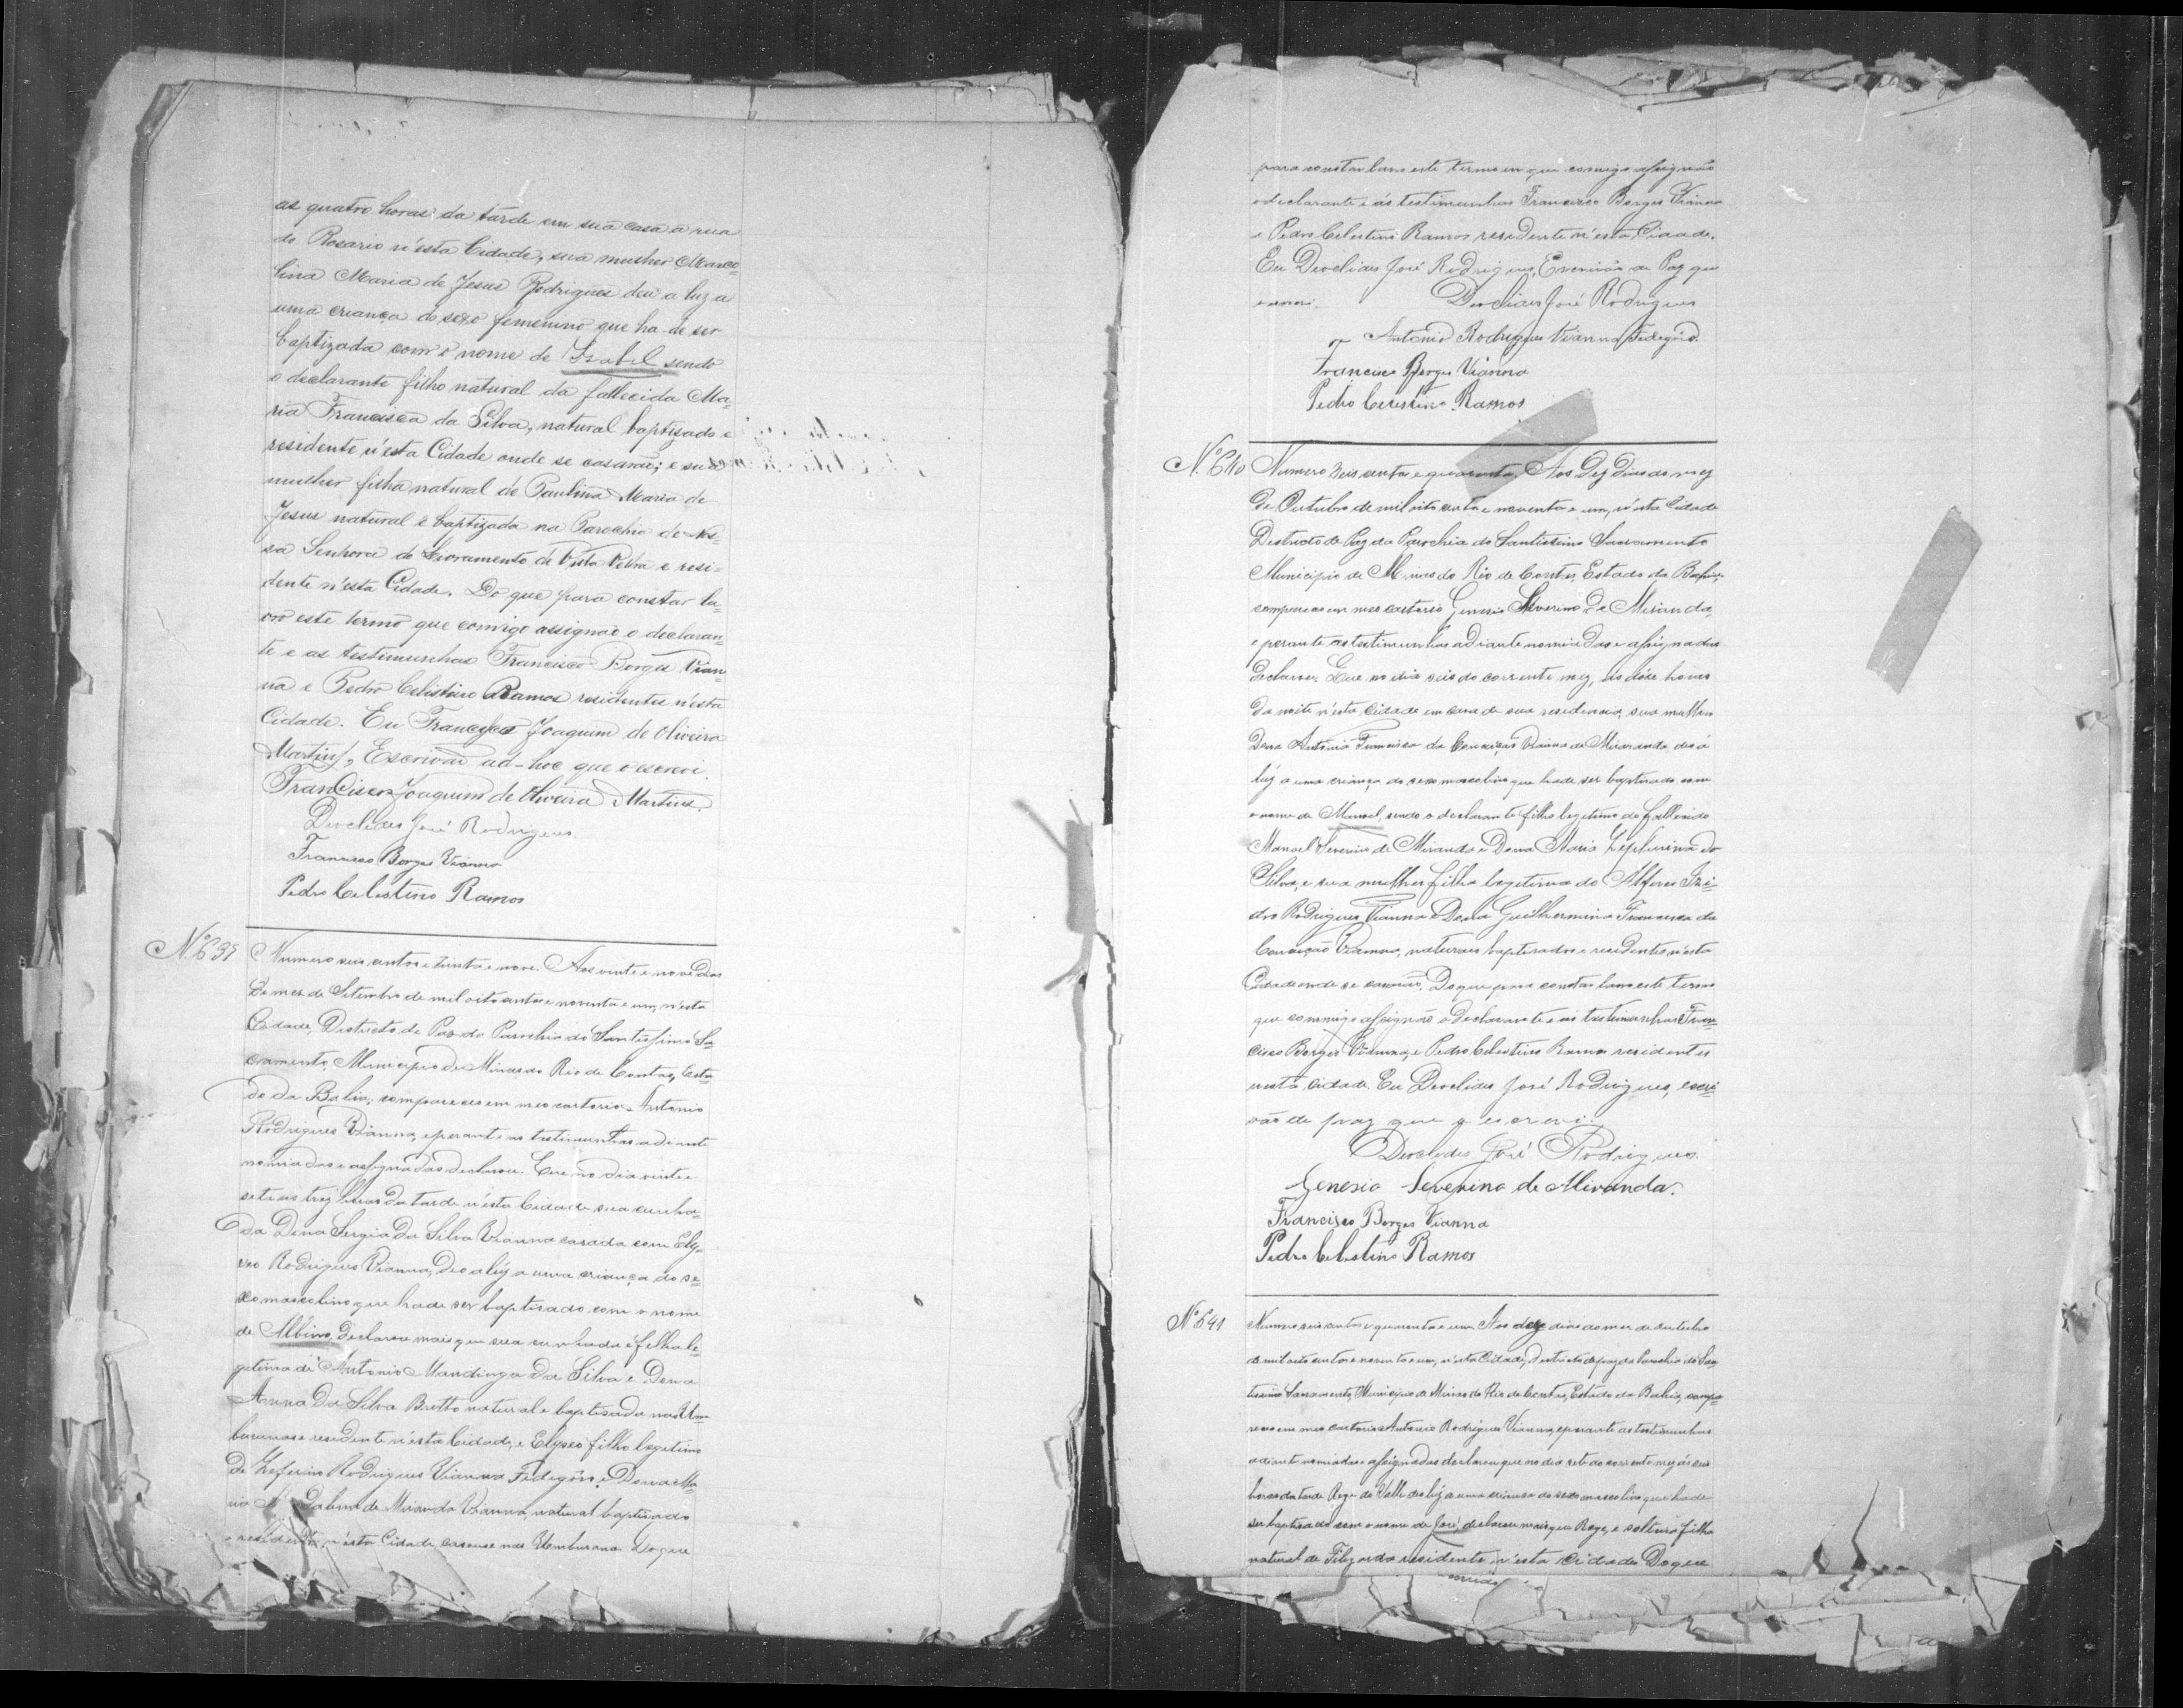 as quatro horas da tarde em sua casa a rua
do Rosario n'esta Cidade, sua mulher Marco-
lina Maria de Jesus Rodrigues deu a luz a
uma criança do sexo femenino que ha de ser
baptizada com o nome de Izabel sendo
o declarante filho natural da fallecida Ma-
ria Francisca da Silva, natural baptizado e
residente n'esta Cidade onde se casarão; e sua
mulher filha natural de Paulina Maria de
Jesus natural e baptizada na Parochia de Nos-
sa Senhora do Livramento de Villa Velha e resi-
dente n'esta Cidade. Do que para constar la-
vro este termo que comigo assignão o declaran-
te e as testemunhas Francisco Borges Vian-
na e Pedro Celistino Ramos residentes n'esta
Cidade. Eu Francisco Joaquim de Oliveira
Martins, Escrivão ad-hoc que o escrevi.
Francisco Joaquim de Oliveira Martins.
Deoclides José Rodrigues.
Francisco Borges Vianna
Pedro Celestino Ramos
Nº 639
Numero seis centos e trinta e nove. Aos vinte e nove dias
do mez de Setembro de mil oito centos e noventa e um, n'esta
Cidade, Destricto de Paz da Parochia do Santissimo Sa-
cramento, Municipio de Minas do Rio de Contas, Esta-
do da Bahia, compareceo em meo cartorio Antonio
Rodrigues Vianna, e perante as testimunhas adiante
nomiadas e assignadas declarou. Que no dia vinte e
sete as trez horas da tarde n'esta Cidade sua cunha-
da Dona Sergia da Silva Vianna casada com Ely-
seo Rodrigues Vianna, deo a lúz a uma criança do se-
xo mascolino que hade ser baptisado com o nome
de Albino, declarou mais que sua cunhada é filha le-
getima de Antonio Mandinga da Silva e Dona
Anna da Silva Britto natural e baptisada nas Um-
buranas e residente n'esta Cidade, e Elyseo filho legitimo
de Zeferino Rodrigues Vianna Fedegôso e Dona Ma-
ria de Miranda Vianna, natural baptisado
e residente n'esta Cidade, casou-se nas Umburanas. Do que
para constar lavro este termo em que comigo assignão
o declarante e ás testimunhas Francisco Borges Vianna
e Pedro Celestino Ramos residente n'esta Cidade.
Eu Deoclides José Rodrigues, Escrivão de Paz que
o escrevi. Deoclides José Rodrigues
Antonio Rodrigues Vianna Fedegôso.
Francisco Borges Vianna
Pedro Celestino Ramos
Nº 640
Numero seis centos e quarenta. Aos Dez dias do mez
de Outubro de mil oito centos e noventa e um, n'esta Cidade
Destricto de Paz da Parochia do Santissimo Sacramento
Municipio de Minas do Rio de Contas, Estado da Bahia,
compareceo em meo cartorio Genesio Severino de Miranda,
e perante as testimunhas adiante nomiadas e assignadas
declarou. Que no dia seis do corrente mez, as dôse horas
da noite n'esta Cidade em casa de sua residencia, sua mulher
Dona Antonia Francisca da Conceição Vianna de Miranda, deo á
lúz a uma criança do sexo mascolino que hade ser baptisado com
o nome de Manoel, sendo o declarante filho legitimo do fallecido
Manoel Severino de Miranda e Dona Maria Zephirina da
Silva, e sua mulher filha legitima do Alferes Izi-
dro Rodrigues Vianna e Dona Guilhermina Francisca da
Conceição Vianna, naturais baptisados e residentes n'esta
Cidade onde se casarão. Do que para constar lavro este termo
que commigo assignão o declarante e as testimunhas Fran-
cisco Borges Vianna, e Pedro Celestino Ramos residentes
nesta cidade. Eu Deoclides José Rodrigues, escri-
vão de paz que o escrevi.
Deoclides José Rodrigues.
Genesio Severino de Miranda.
Francisco Borges Vianna
Pedro Celestino Ramos
Nº 641
Numero seis centos e quarenta e um. Aos dez dias do mez de outubro
de mil oito centos e noventa e um, n'esta Cidade, Destricto de paz da Parochia do San-
tissimo Sacramento, Municipio de Minas do Rio de Contas, Estado da Bahia, compa-
receo em meo cartorio Antonio Rodrigues Vianna, e perante as testimunhas
adiante nomiadas e assignadas declarou que no dia sete do corrente mez ás seis
horas da tarde do Valle deo lúz a uma criança do sexo mascolino que hade
ser baptisado com o nome de José, declarou mais que é solteira filha
natural de residente n'esta Cidade. Do que